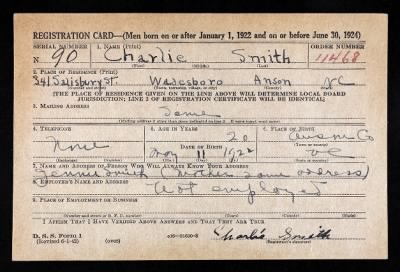 REGISTRATION CARD—(Men born on or after January 1, 1922 and on or before June 30, 1924)
SERIAL NUMBER 1. NAME (Print) ORDER NUMBER
N 90 Charlie Smith 11468
2. PLACE OF RESIDENCE (Print)
341 Salisbury St. Wadesboro Anson N.C
[THE PLACE OF RESIDENCE GIVEN ON THE LINE ABOVE WILL DETERMINE LOCAL BOARD
JURISDICTION; LINE 2 OF REGISTRATION CERTIFICATE WILL BE IDENTICAL]
3. MAILING ADDRESS
Same
[Mailing address if other than place indicated on line 2. If same insert word same]
4. TELEPHONE 5. AGE IN YEARS 6. PLACE OF BIRTH
20 Anson Co
None DATE OF BIRTH (Town or county)
Nov 11 1922 N.C
(Exchange) (Number) (Mo.) (Day) (Yr.) (State or country)
7. NAME AND ADDRESS OF PERSON WHO WILL ALWAYS KNOW YOUR ADDRESS
Smith (Mother same address)
8. EMPLOYER'S NAME AND ADDRESS
Not employed
9. PLACE OF EMPLOYMENT OR BUSINESS
(Number and street or R. F. D. number) (Town) (County) (State)
I AFFIRM THAT I HAVE VERIFIED ABOVE ANSWERS AND THAT THEY ARE TRUE.
D. S. S. Form 1
(Revised 6-1-42) Charlie Smith
(Registrant's signature)